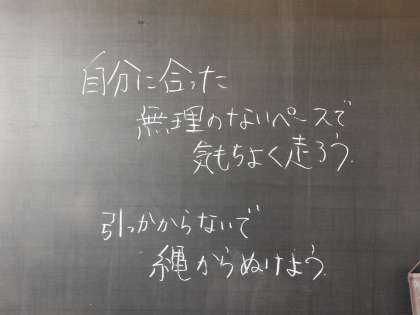 自分に合った
無理のないペースで
気もちよく走ろう.
引っかからないで
縄からぬけよう.